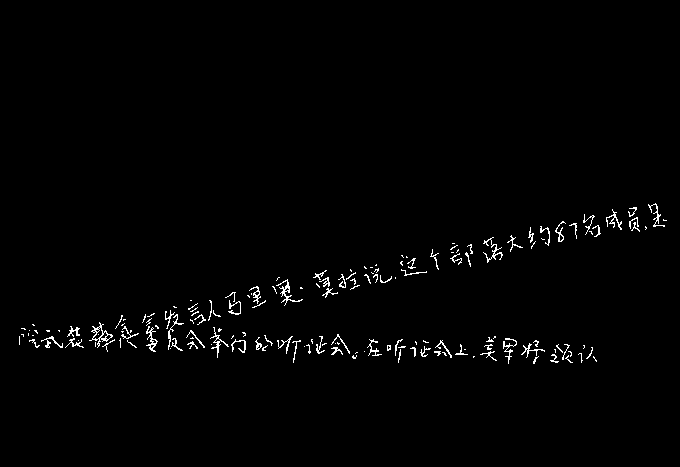 发言人马里奥·莫拉说,这个部落大约87名成员,是
院武装委员会举行的听证会。在听证会上,美军将领认